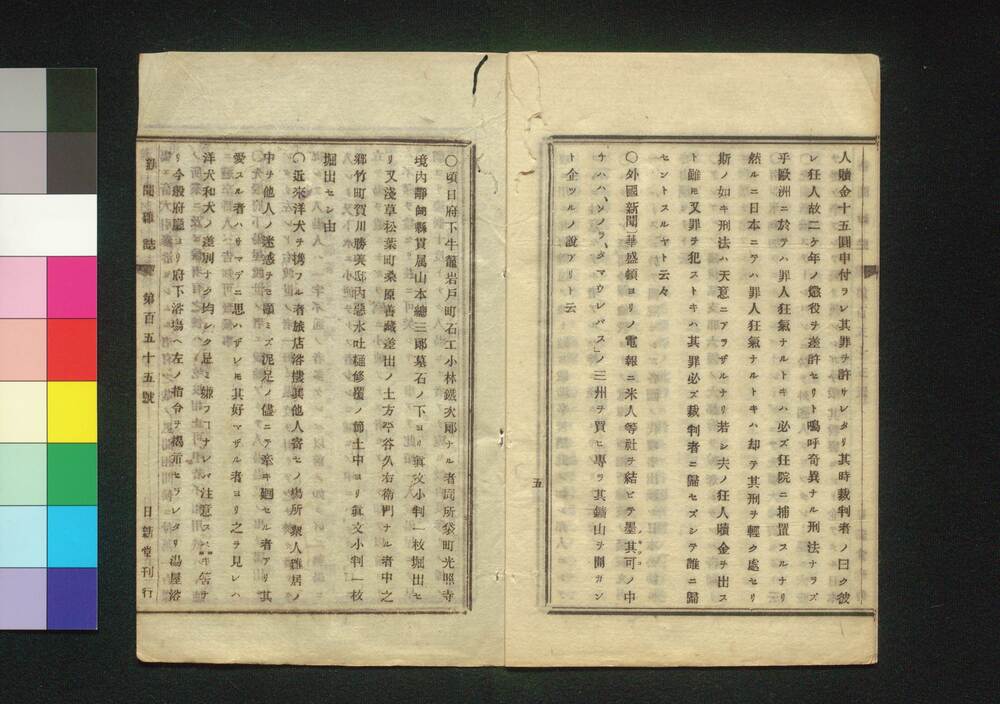 人贖金十五圓申付ラレ其罪ヲ許サレタリ其時裁判者ノ曰ク彼
レ狂人故二ケ年ノ懲役ヲ差許セリト嗚呼奇異ナル刑法ナラズ
乎歐洲ニ於テハ罪人狂氣ナルトキハ必ズ狂院ニ捕置スルナリ
然ルニ日本ニテハ罪人狂氣ナルトキハ却テ其刑ヲ輕ク處セリ
斯ノ如キ刑法ハ天意ニアラザルナリ若シ夫ノ狂人贖金ヲ出ス
ト雖モ又罪ヲ犯ストキハ其罪必ズ裁判者ニ歸セズシテ誰ニ歸
セントスルヤト云々
〇外國新聞華盛頓ヨリノ電報ニ米人等社ヲ結ビテ墨其可ノ中
メキシコ
チハハ、ソノラ、タマウレパス」ノ三州ヲ買ヒ專ラ其鑛山ヲ開カン
ト企ツルノ說アリト云
五
〇頃日府下牛籠岩戸町石工小林鐵次郎ナル者同所袋町光照寺
境内靜岡縣貫属山本總三郎墓石ノ下ヨリ眞文小判一枚堀出セ
リ又淺草松葉町桑原善藏差出ノ土方平谷久右衛門ナル者中之
鄕竹町賀川勝英邸内惡水吐樋修覆ノ節土中ヨリ眞文小判一枚
堀出セシ由
〇近來洋犬ヲ携フル者旅店浴樓其他人寄セノ塲所衆人雜居ノ
中ヲ他人ノ迷惑ヲモ顧ミズ泥足ノ儘ニテ牽キ廻セル者アリ其
愛スル者ハサマデニ思ハザレ𪜈其好マザル者ヨリ之ヲ見レハ
洋犬和犬ノ差別ナク均シク是ミ嫌フコナレバ注意スベキ筈ナ
リ今般府廳ヨリ府下浴塲ヘ左ノ指令ヲ揭示セラレタリ湯屋浴
新聞雜誌
第百五十五號
日新堂刊行